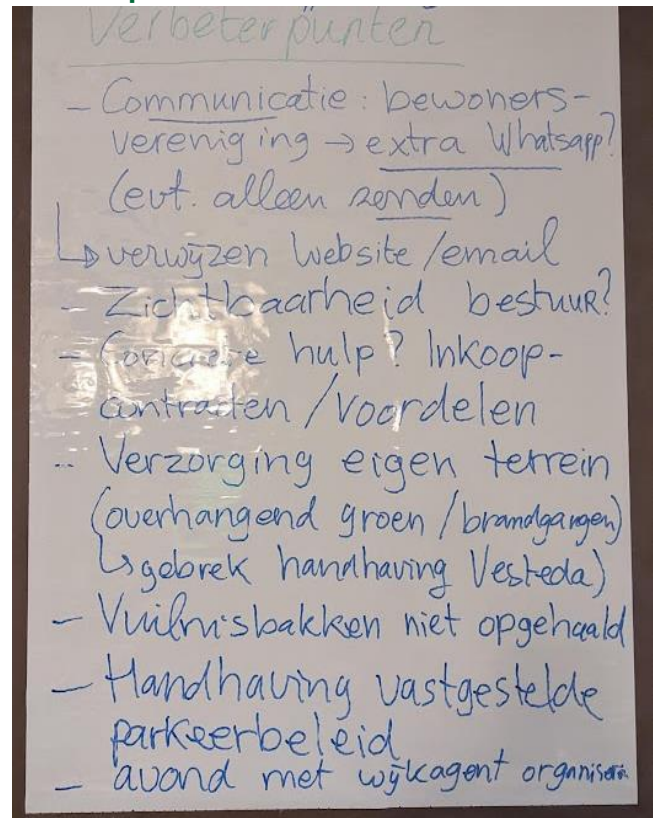 Verbeterpunten
- Communicatie: bewoners-
vereniging → extra Whatsapp?
(evt. alleen zenden)
↳ verwijzen website/email
- Zichtbaarheid bestuur?
- Concrete hulp? Inkoop-
contracten/voordelen
- Verzorging eigen terrein
(overhangend groen/brandgangen)
↳ gebrek handhaving Vesteda)
- Vuilnisbakken niet opgehaald
- Handhaving vastgestelde
parkeerbeleid
- avond met wijkagent organiseren